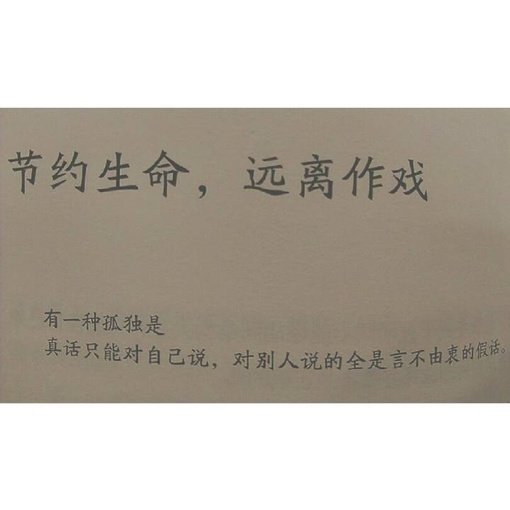 节约生命，远离作戏
有一种孤独是
真话只能对自己说，对别人说的全是言不由衷的假话。